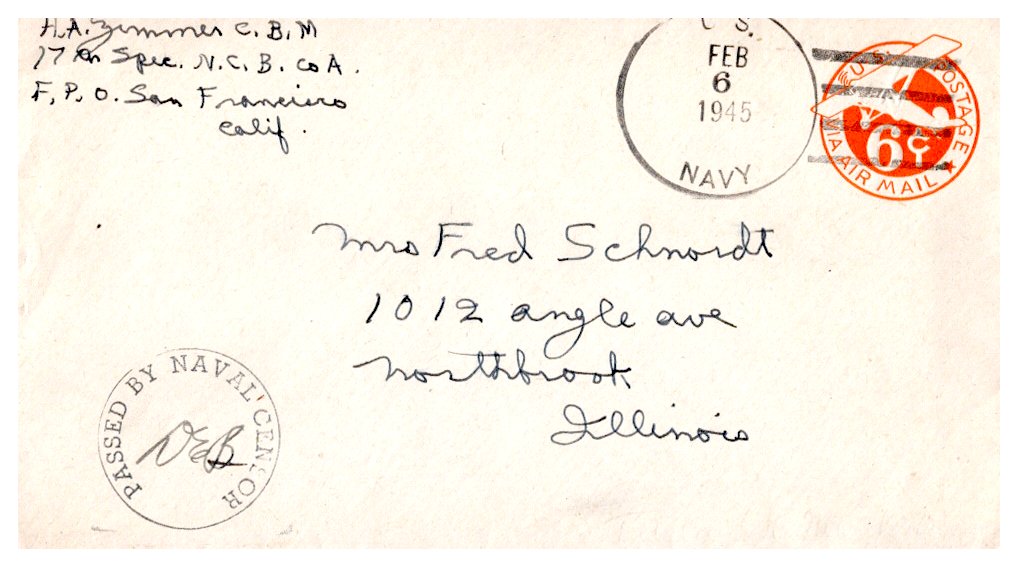 H.A. Zimmer C.B.M
17th Spec. N.C.B. Co A.
F.P.O. San Francisco
Calif.
U.S.
FEB
6
1945
NAVY
U.S. POSTAGE
6¢
VIA AIR MAIL
Mrs Fred Schnordt
1012 angle ave
northbrook
Illinois
PASSED BY NAVAL CENSOR